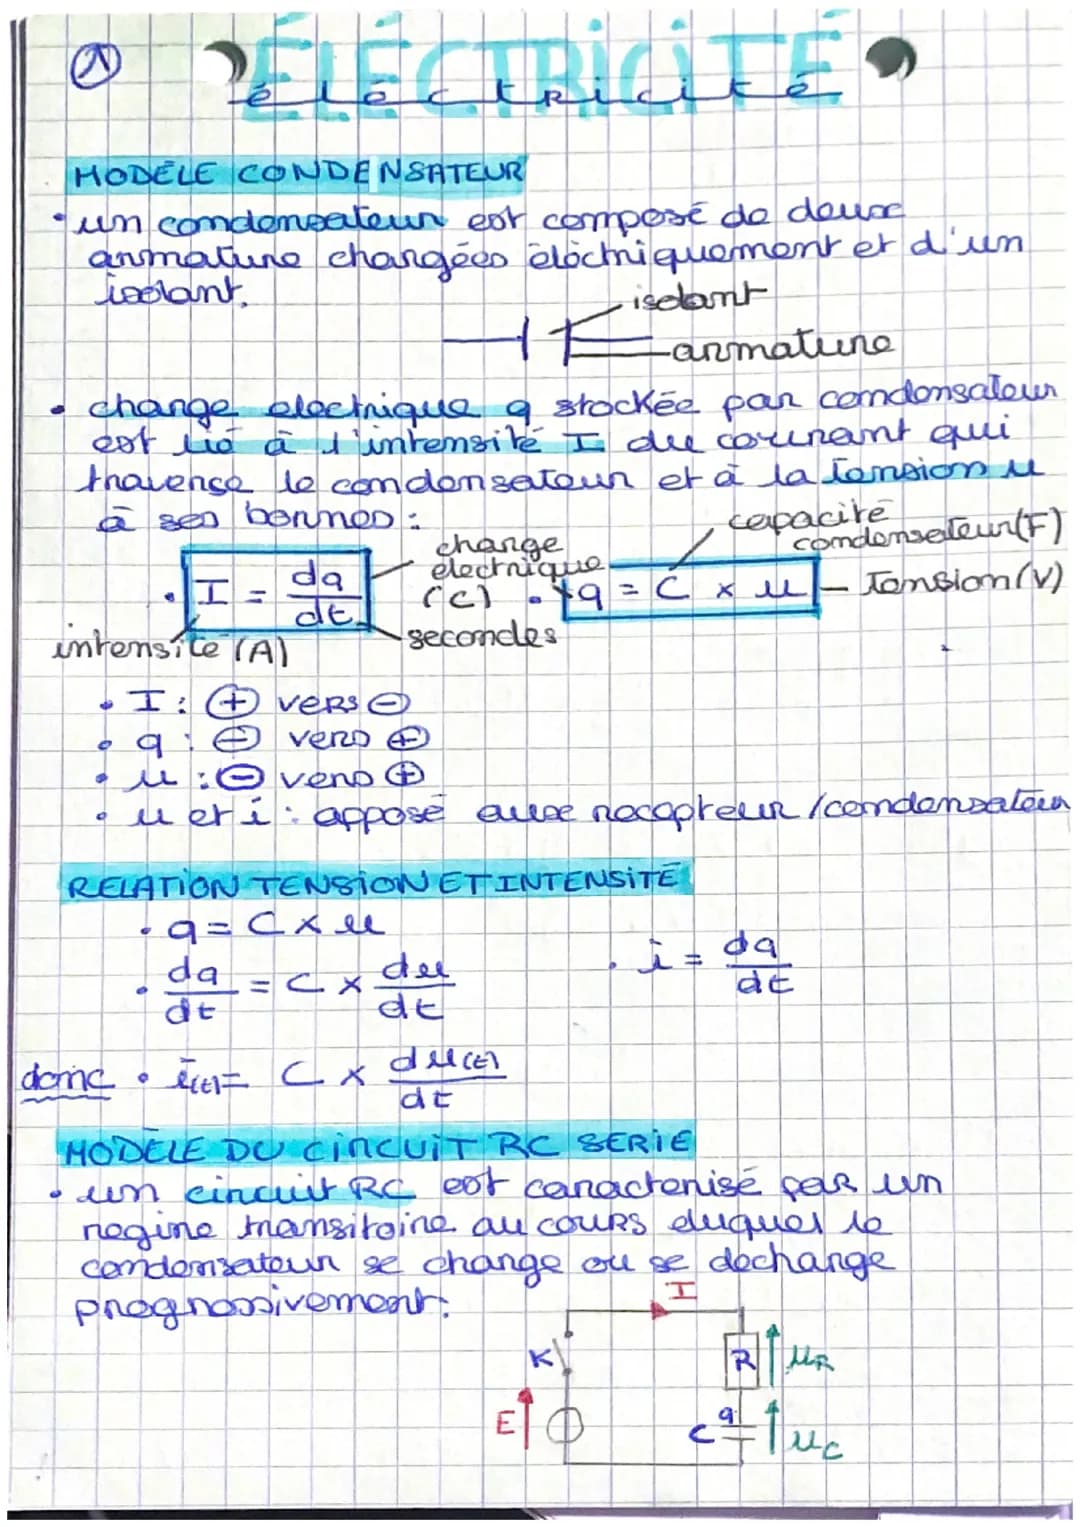 1
ÉLÉCTRICITÉ
électricité
MODÈLE CONDENSATEUR
• un condensateur est composé de deux
armature chargées éléctriquement et d'un
isolant.
isolant
armature
• charge electrique q stockée par condensateur
est lié à l'intensité I du courant qui
traverse le condensateur et à la tension u
à ses bornes :
capacité
condensateur (F)
charge
électrique
(C)
• I = dq/dt
• q = C × u
Tension (V)
secondes
intensité (A)
• I : ⊕ vers ⊖
• q : ⊖ vers ⊕
• u : ⊖ vers ⊕
• u et i : opposé aux recepteur / condensateur
RELATION TENSION ET INTENSITÉ
• q = C × u
• dq/dt = C × du/dt
• i = dq/dt
donc • i(t) = C × du(t)/dt
MODÈLE DU CIRCUIT RC SERIE
• un circuit RC est caracterisé par un
regine transitoire au cours duquel le
condensateur se charge ou se decharge
progressivement :
I
K
R
uR
E
q
C
uC